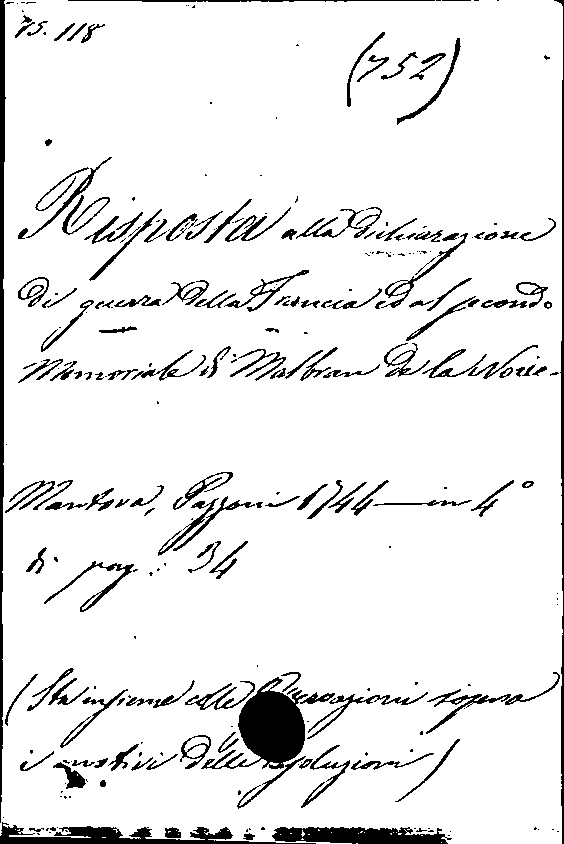 75. 118
(752)
Risposta alla dichiarazione
di guerra della Francia ed al secondo
Memoriale di Malbran de la Noue-
Mantova, Pazzoni 1744 — in 4°
di pag: 34
(Sta insieme colle Osservazioni sopra
i motivi delle Risoluzioni)